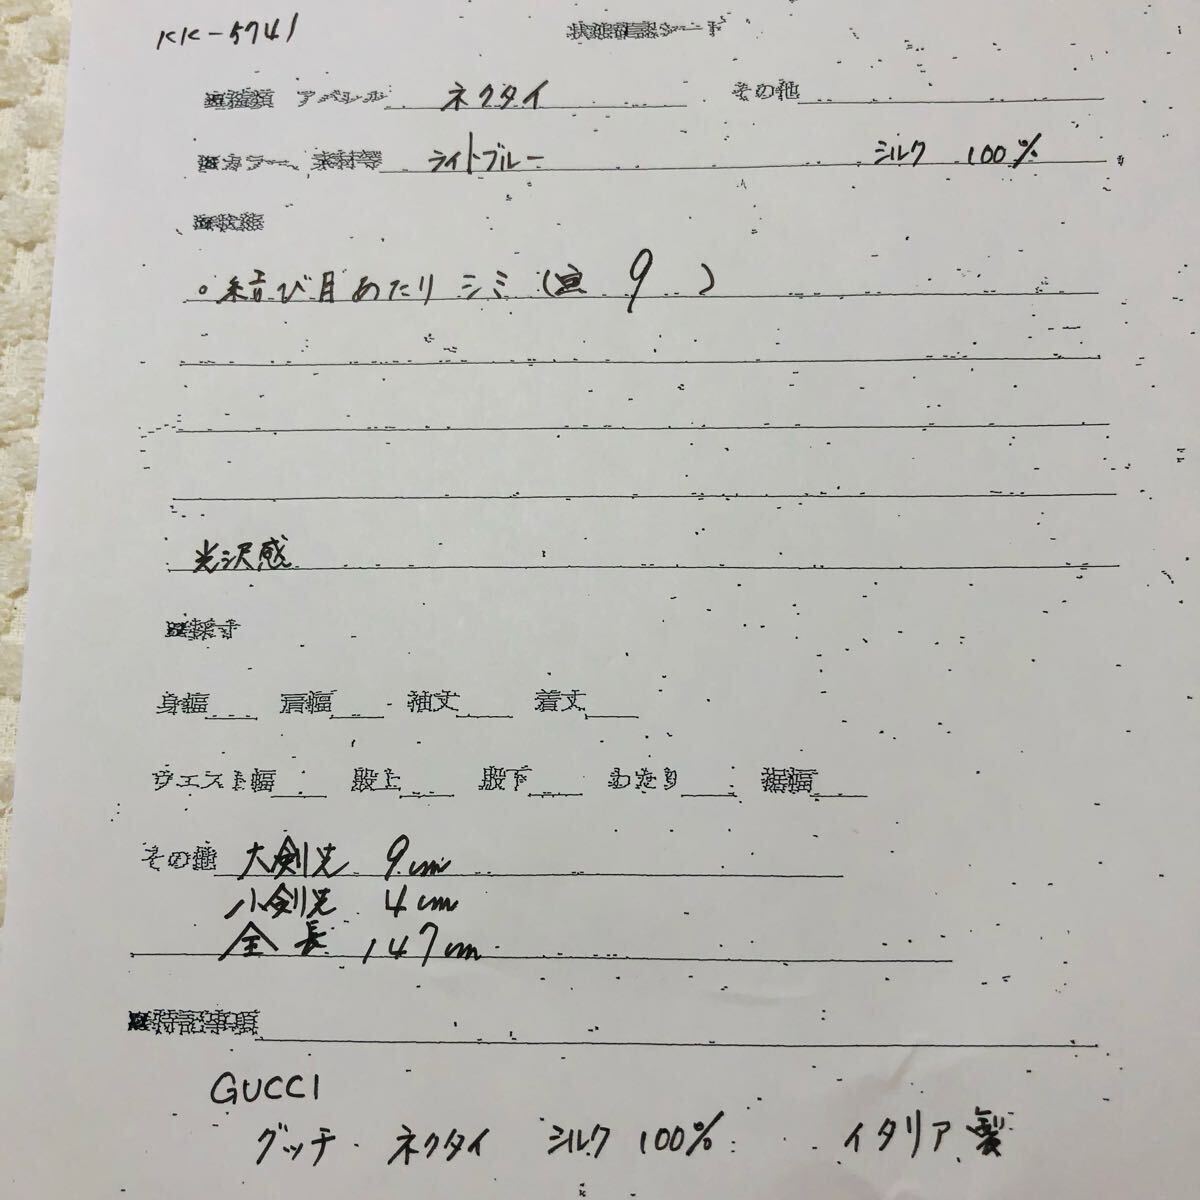 KK-5741
状態確認シート
■種類 アパレル ネクタイ その他
■カラー、素材等 ライトブルー シルク 100%
■状態
。結び目あたり シミ( 9 )
光沢感
■採寸
身幅 肩幅 袖丈 着丈
ウエスト幅 股上 股下 わたり 裾幅
その他 大剣先 9cm
小剣先 4cm
全長 147cm
■特記事項
GUCCI
グッチ ネクタイ シルク 100% イタリア製